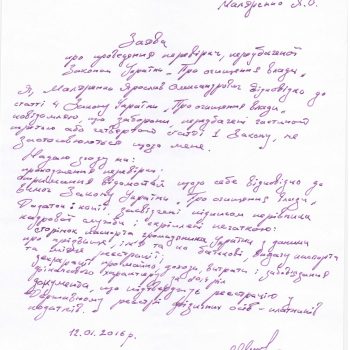 Маляренко Я.О.
Заява
про проведення перевірки, передбаченої
Законом України „Про очищення влади"
Я, Маляренко Ярослав Олександрович відповідно до
статті 4 Закону України „Про очищення влади"
повідомляю, що заборони, передбачені частиною
третьою або четвертою статті 1 Закону, не
застосовуються щодо мене.
Надаю згоду на:
проходження перевірки;
оприлюднення відомостей щодо себе відповідно до
вимог Закону України „Про очищення влади".
Додатки: копії, засвідчені підписом керівника
кадрової служби і скріплені печаткою:
сторінок паспорта громадянина України з даними
про прізвище, ім'я та по батькові, видачу паспорта
та місце реєстрації;
декларації про майно, доходи, витрати і зобов'язання
фінансового характеру за рік
документа, що підтверджує реєстрацію у
Державному реєстрі фізичних осіб – платників
податків.
12.01.2016 р.